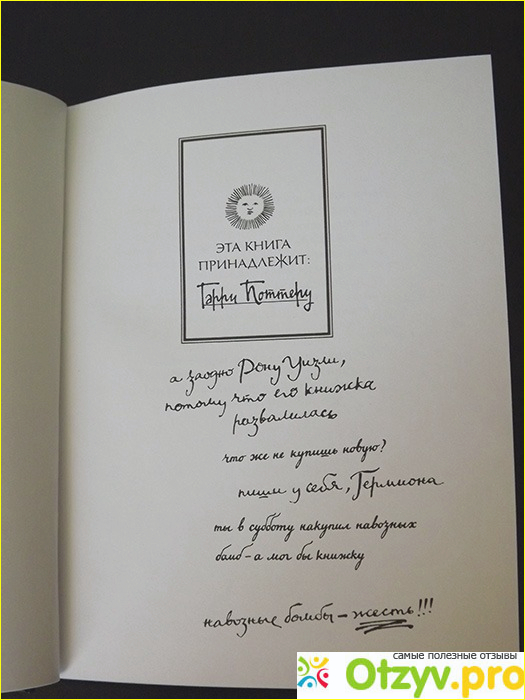 ЭТА КНИГА
ПРИНАДЛЕЖИТ:
Гарри Поттеру
а заодно Рону Уизли,
потому что его книжка
развалилась
что же не купишь новую?
пиши у себя, Гермиона
ты в субботу накупил навозных
бомб - а мог бы книжку
навозные бомбы - жесть!!!
самые полезные отзывы
Otzyv.pro